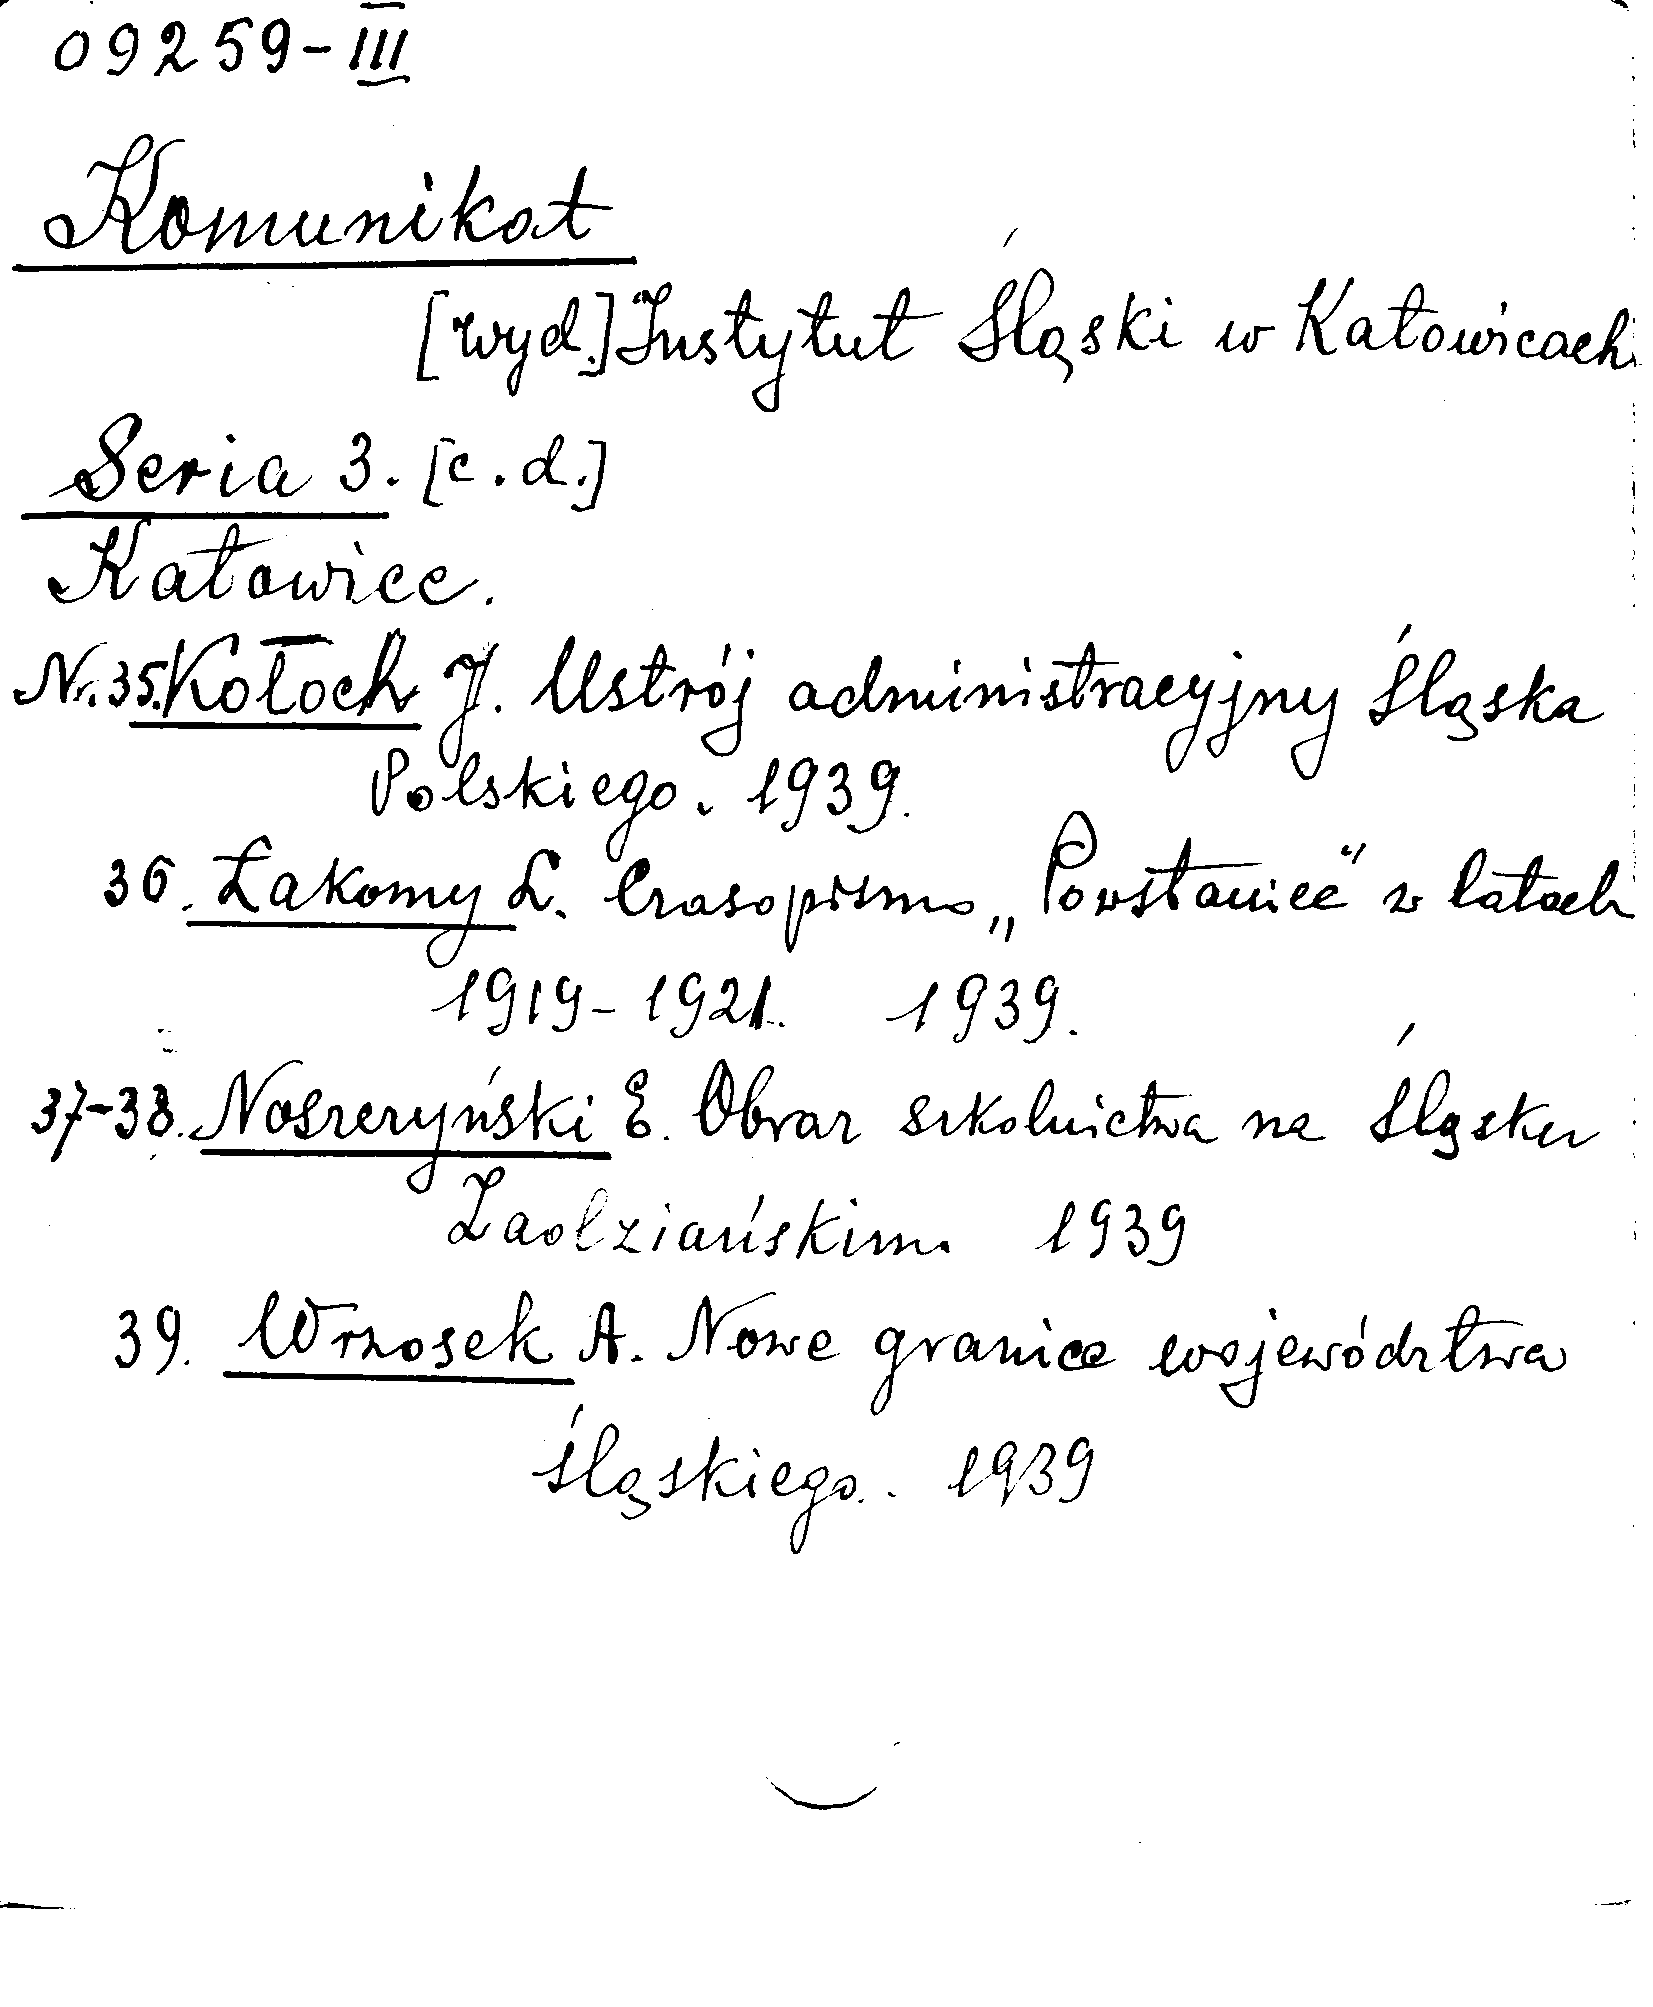 09259-III
Komunikat
[wyd.] Instytut Śląski w Katowicach
Seria 3. [c.d.]
Katowice.
Nr. 35. Kołoch J. Ustrój administracyjny Śląska
Polskiego. 1939.
36. Łakomy L. Czasopismo „Powstaniec" w latach
1919-1921. 1939.
37-38. Noszczyński E. Obraz szkolnictwa na Śląsku
Zaolziańskim. 1939
39. Wrzosek A. Nowe granice województwa
śląskiego. 1939